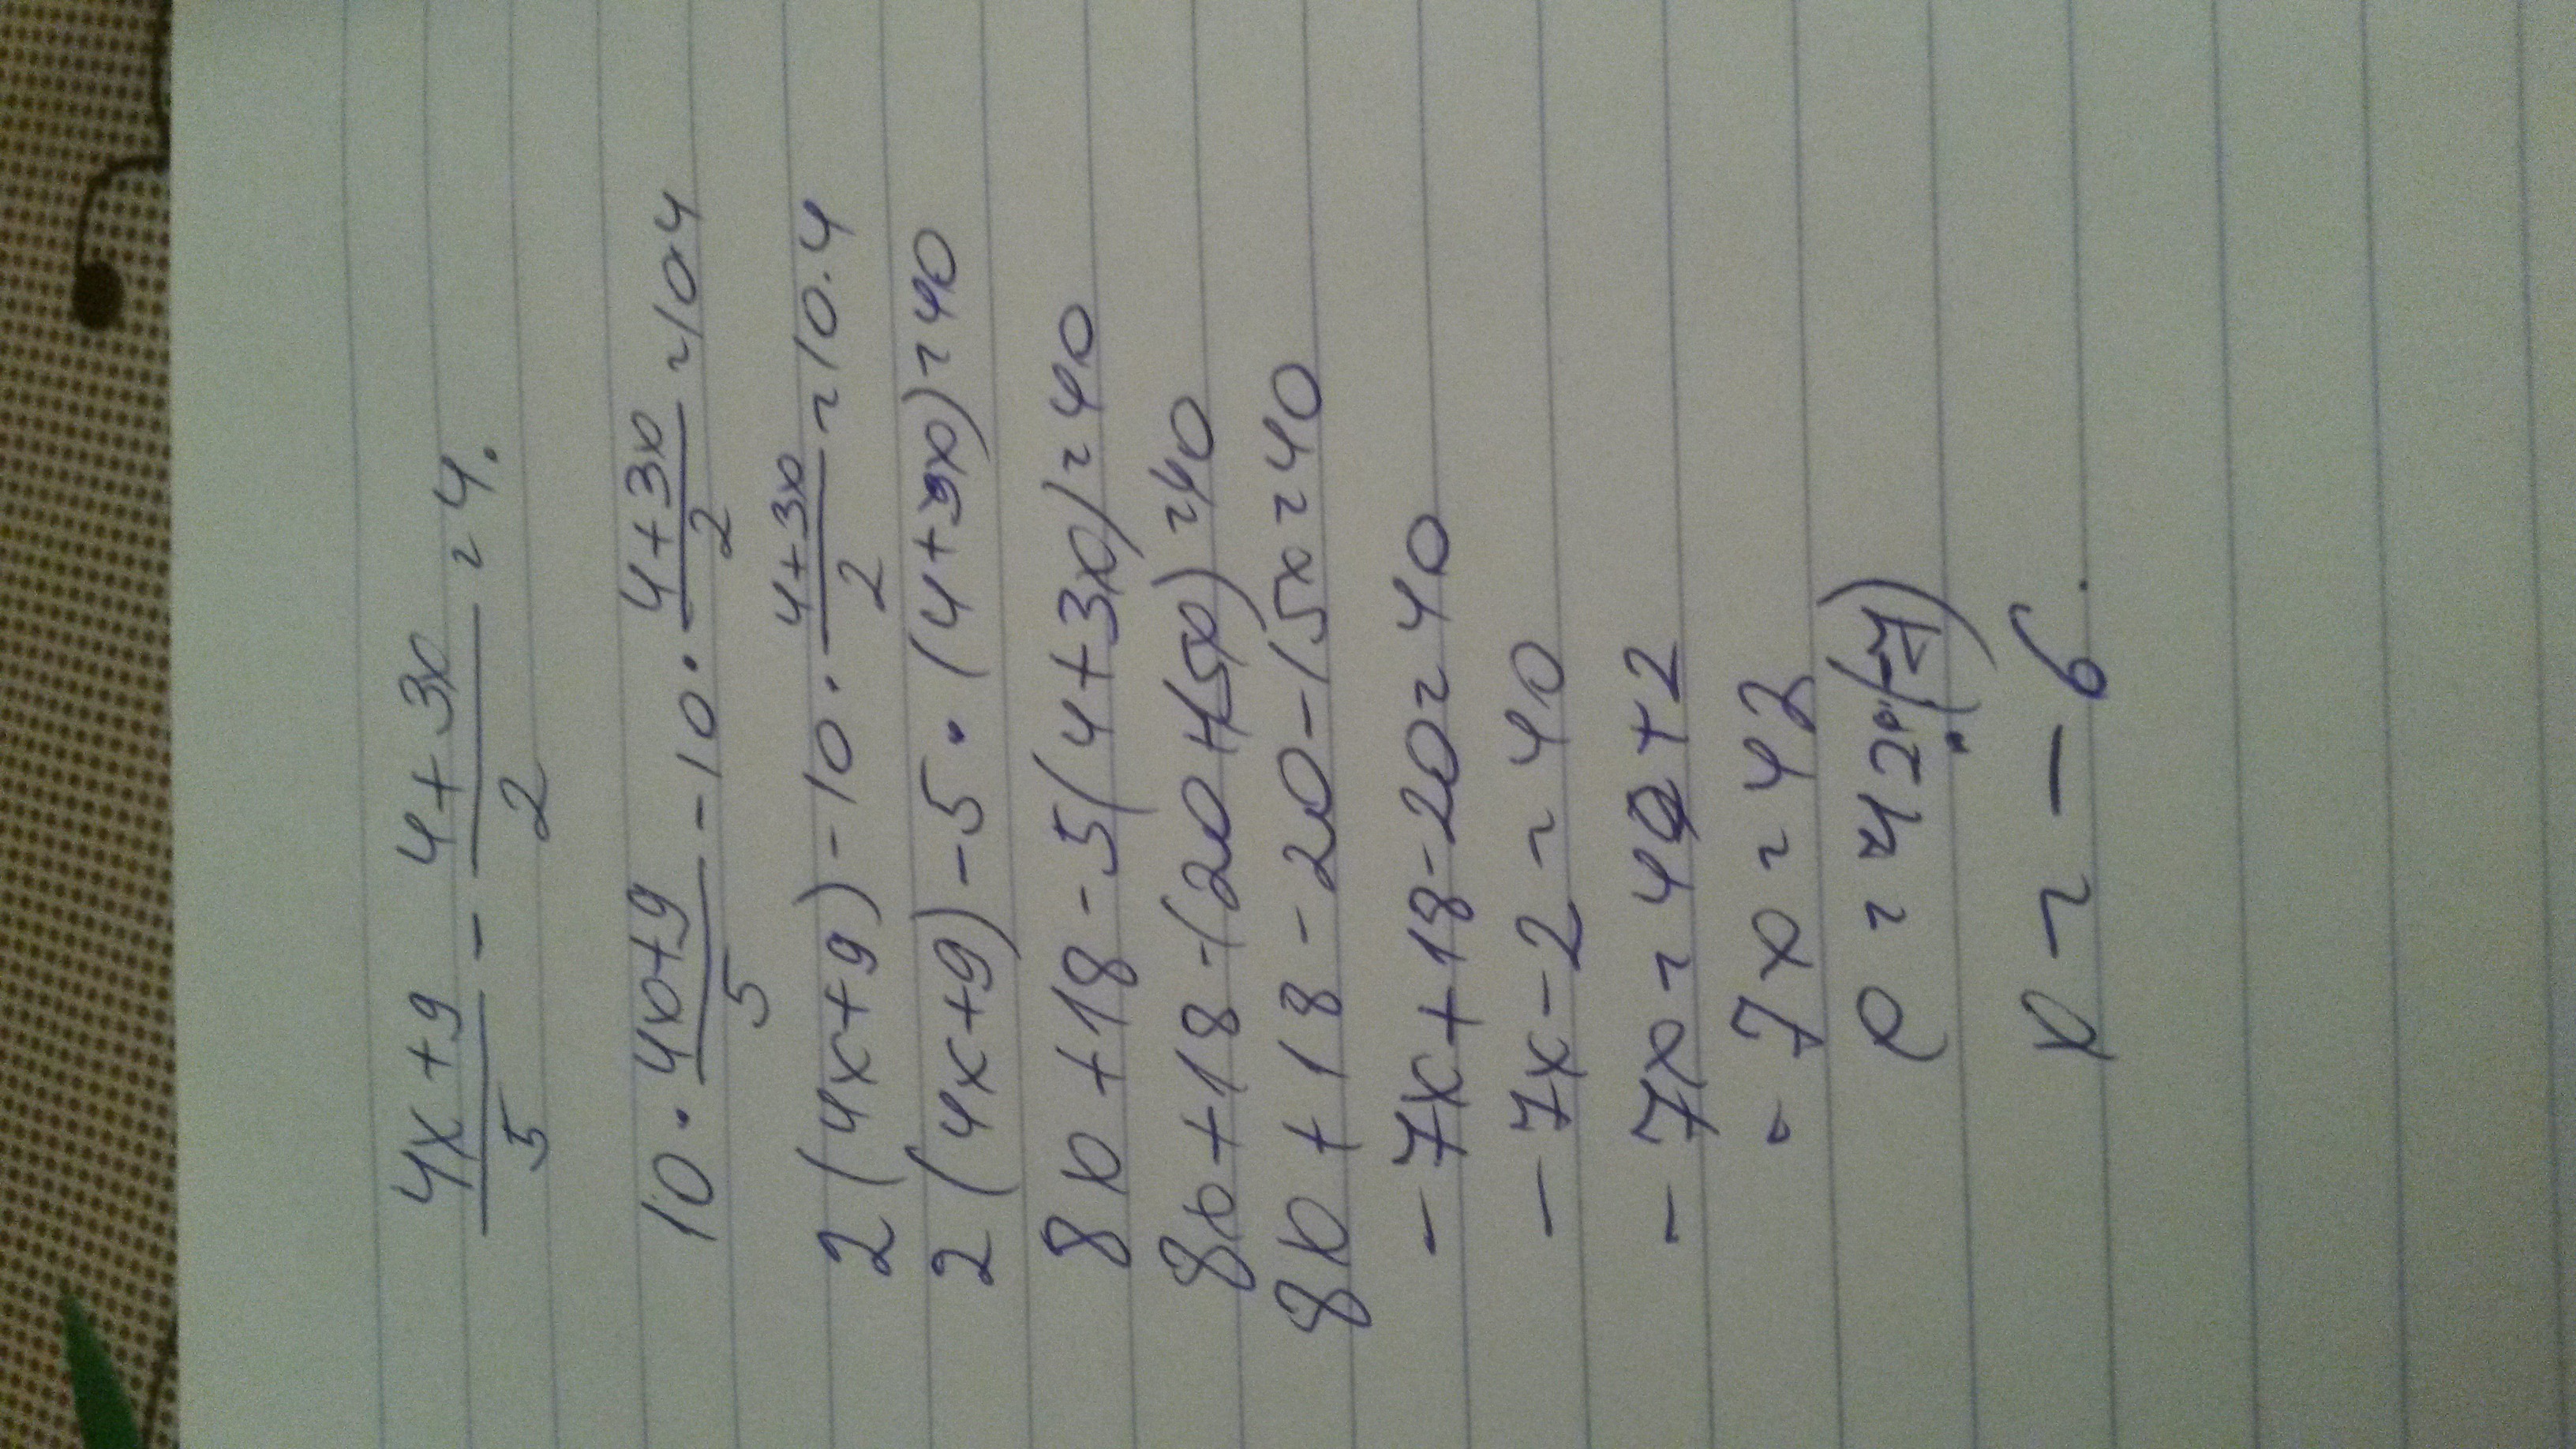 4x+9/5 - 4+3x/2 = 4.
10·4x+9/5 - 10·4+3x/2 = 10·4
2(4x+9) - 10·4+3x/2 = 10·4
2(4x+9) - 5·(4+3x) = 40
8x+18-5(4+3x) = 40
8x+18-(20+15x) = 40
8x+18-20-15x = 40
-7x+18-20 = 40
-7x-2 = 40
-7x = 40+2
-7x = 42
x = 42:(-7)
x = -6.